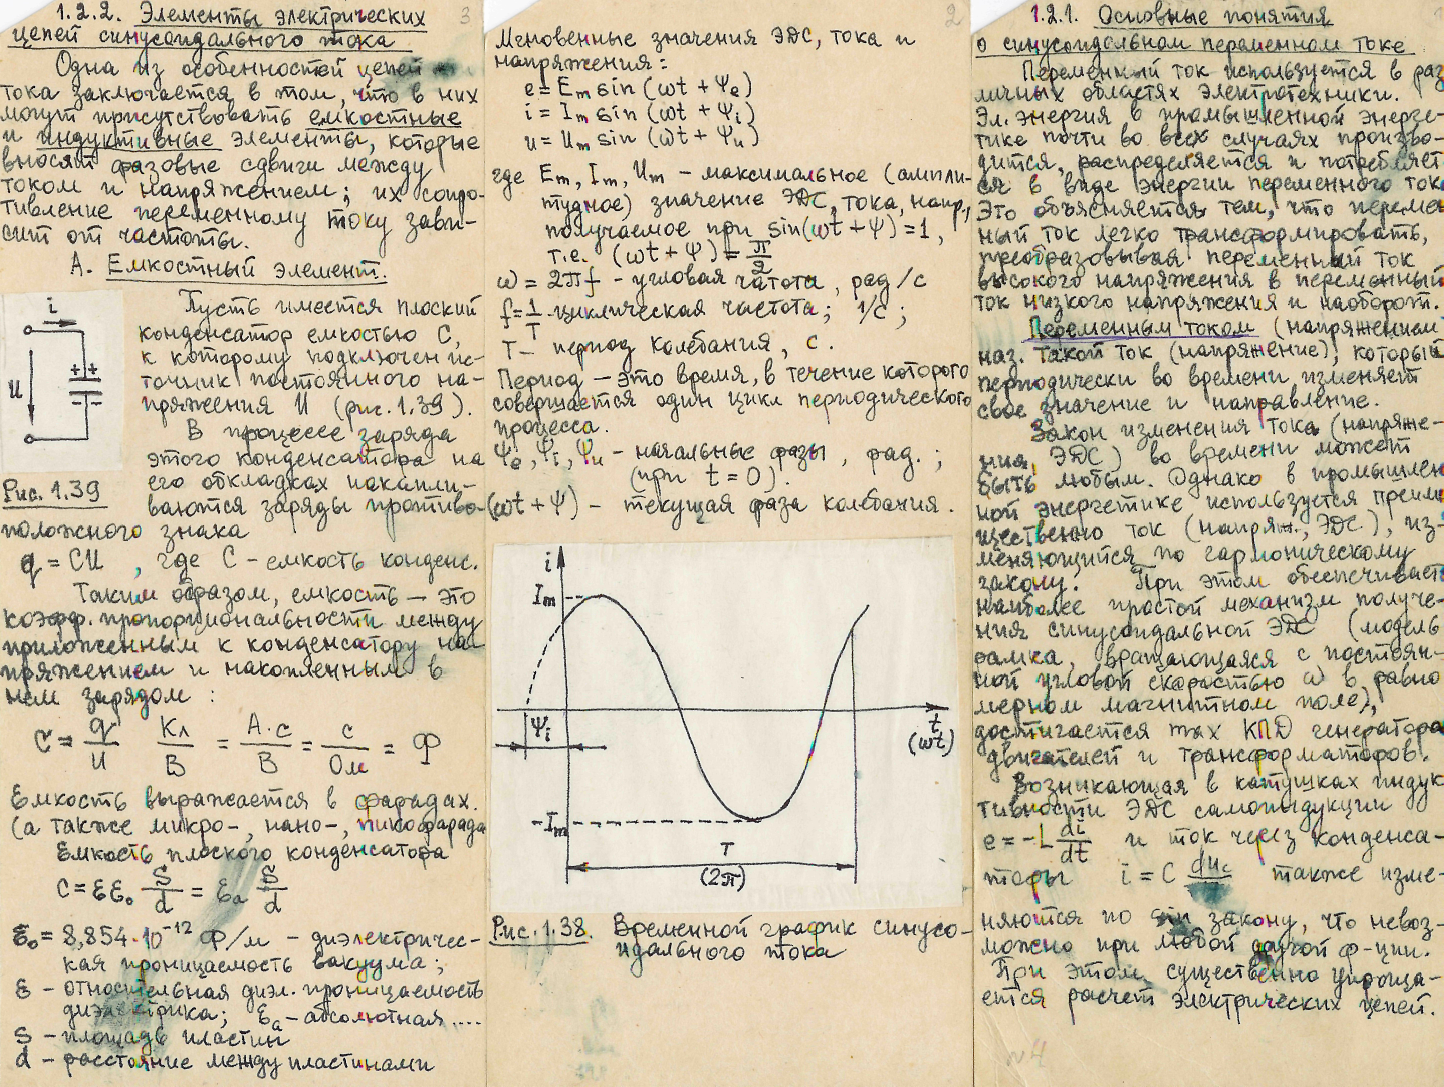 1.2.2. Элементы электрических 3
цепей синусоидального тока
Одна из особенностей цепей
тока заключается в том, что в них
могут присутствовать емкостные
и индуктивные элементы, которые
вносят фазовые сдвиги между
током и напряжением; их сопро-
тивление переменному току зави-
сит от частоты.
А. Емкостный элемент.
Пусть имеется плоский
конденсатор емкостью С,
к которому подключен ис-
точник постоянного на-
пряжения U (рис. 1.39).
В процессе заряда
этого конденсатора на
его обкладках накапли-
ваются заряды противо-
положного знака
i
U
++
--
Рис. 1.39
q = CU , где С - емкость конденс.
Таким образом, емкость — это
коэфф. пропорциональности между
приложенным к конденсатору на-
пряжением и накопленным в
нем зарядом :
C = q/U Кл/В = А·с/В = с/Ом = Ф
Емкость выражается в фарадах.
(а также микро-, нано-, пикофарада
Емкость плоского конденсатора
C = εε₀ S/d = εa S/d
ε₀ = 8,854·10⁻¹² Ф/м - диэлектричес-
кая проницаемость вакуума;
ε - относительная диэл. проницаемость
диэлектрика; εa - абсолютная ....
S - площадь пластин
d - расстояние между пластинами
2
Мгновенные значения ЭДС, тока и
напряжения :
e = Em sin (ωt + Ψe)
i = Im sin (ωt + Ψi)
u = Um sin (ωt + Ψu)
где Em, Im, Um - максимальное (ампли-
тудное) значение ЭДС, тока, напр.,
получаемое при sin(ωt + Ψ) = 1,
т.е. (ωt + Ψ) = π/2
ω = 2πf - угловая частота, рад/с
f = 1/T - циклическая частота; 1/с ;
T — период колебания, с.
Период — это время, в течение которого
совершается один цикл периодического
процесса.
Ψe, Ψi, Ψu - начальные фазы, рад. ;
(при t = 0).
(ωt + Ψ) - текущая фаза колебания.
i
Im
Ψi
t
(ωt)
-Im
T
(2π)
Рис. 1.38. Временной график синусо-
идального тока
1.2.1. Основные понятия
о синусоидальном переменном токе
Переменный ток используется в раз
личных областях электротехники.
Эл. энергия в промышленной энерге-
тике почти во всех случаях произво-
дится, распределяется и потребляет
ся в виде энергии переменного тока
Это объясняется тем, что перемен
ный ток легко трансформировать,
преобразовывая переменный ток
высокого напряжения в переменный
ток низкого напряжения и наоборот.
Переменным током (напряжением
наз. такой ток (напряжение), который
периодически во времени изменяет
свое значение и направление.
Закон изменения тока (напряже-
ния, ЭДС) во времени может
быть любым. Однако в промышлен
ной энергетике используется преим
ущественно ток (напряж., ЭДС), из-
меняющийся по гармоническому
закону. При этом обеспечивает
наиболее простой механизм получе-
ния синусоидальной ЭДС (модель
рамка, вращающаяся с постоян-
ной угловой скоростью ω в равно
мерном магнитном поле),
достигается max КПД генератора
двигателей и трансформаторов.
Возникающая в катушках индук
тивности ЭДС самоиндукции
e = -L di/dt и ток через конденса-
торы i = C duc/dt также изме-
няются по sin закону, что невоз-
можно при любой другой ф-ции.
При этом существенно упроща-
ется расчет электрических цепей.
№4